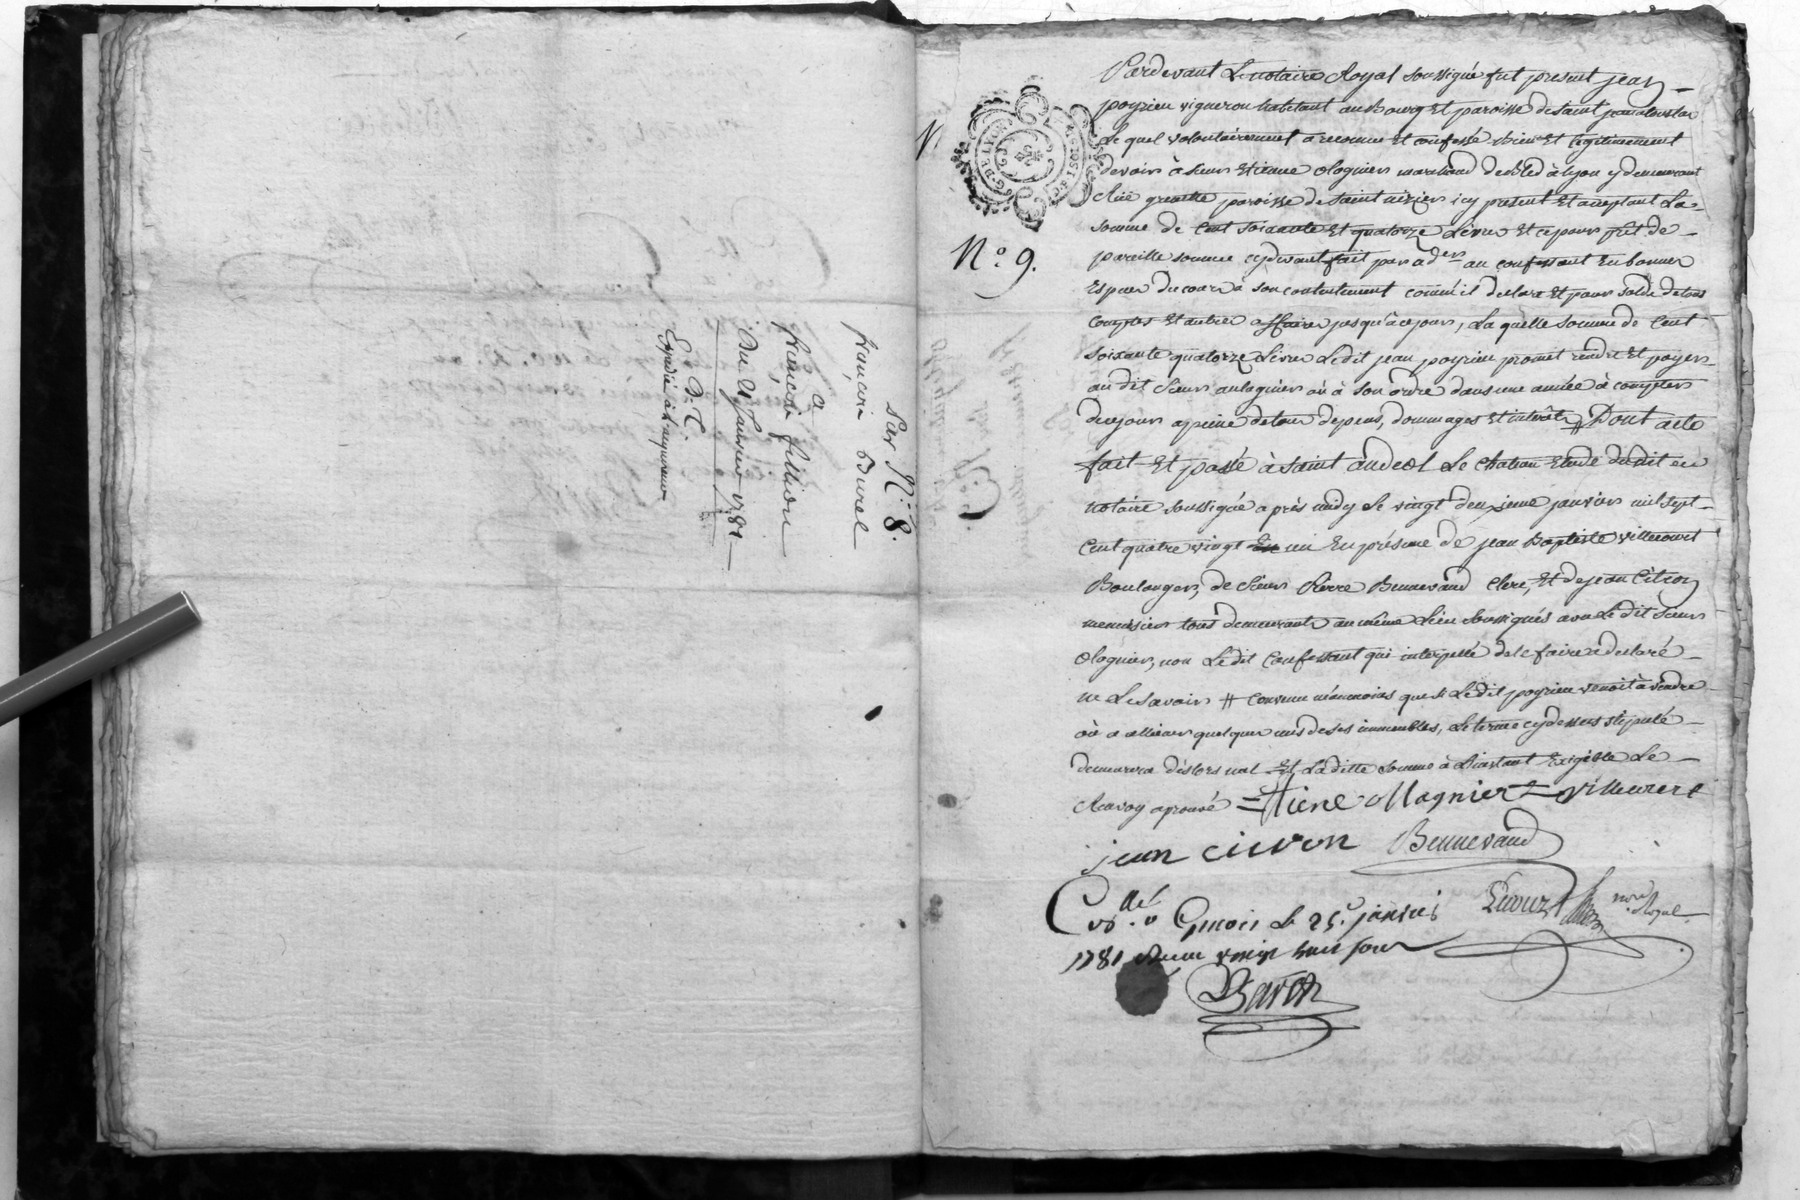 Par N.º 8.
françois Burel
a
françois fillion
Du 21 Janvier 1781
D. C.
Expedié à l'acquereur
G. DE LYON
N.º 9.
Pardevant Le notaire Royal soussigné fut present jean
poyzieu vigneron habitant au Bourg Et paroisse de saint jean
Le quel volontairement a reconnu Et confessé bien Et legitimement
devoir à sieur Etienne Magnier marchand de bled à lyon y demeurant
Rüe paroisse de saint icy present Et acceptant La
somme de Cent soixante Et quatorze Livres Et ce pour prêt de
pareille somme cydevant fait par a den au confessant En bonnes
Especes du cours à son contentement comme il declare Et pour solde de tous
comptes Et autres affaires jusqu'à ce jour, La quelle somme de Cent
soixante quatorze Livres Ledit jean poyzieu promet rendre Et payer
au dit sieur Magnier où à son ordre dans une année à compter
de ce jour a peine de tous depens, dommages Et interêts # Dont acte
fait Et passé à saint andeol Le Chateau Etude dudit
notaire soussigné après midy Le vingt deuxieme janvier mil sept
Cent quatre vingt un En présence de jean Baptiste villecourt
Boulanger, de sieur Pierre Bennevaud Clerc, Et de jean Citron
menuisier tous demeurants au même Lieu soussignés avec Ledit sieur
Magnier, non Ledit Confessant qui interpellé de le faire a declaré
ne Le savoir # convenu néanmoins que si Ledit poyzieu venoit à vendre
où a alliener quelques uns de ses immeubles, Le terme cydessus stipulé
demeurera déslors nul Et La ditte somme à L'instant Exigible Le
Renvoy aprouvé Etiene Magnier villecourt
jean citron Bennevaud
nore Royal
Cllé à Givors Le 25.e janvier
1781 Recu vingt huit sous
Baron